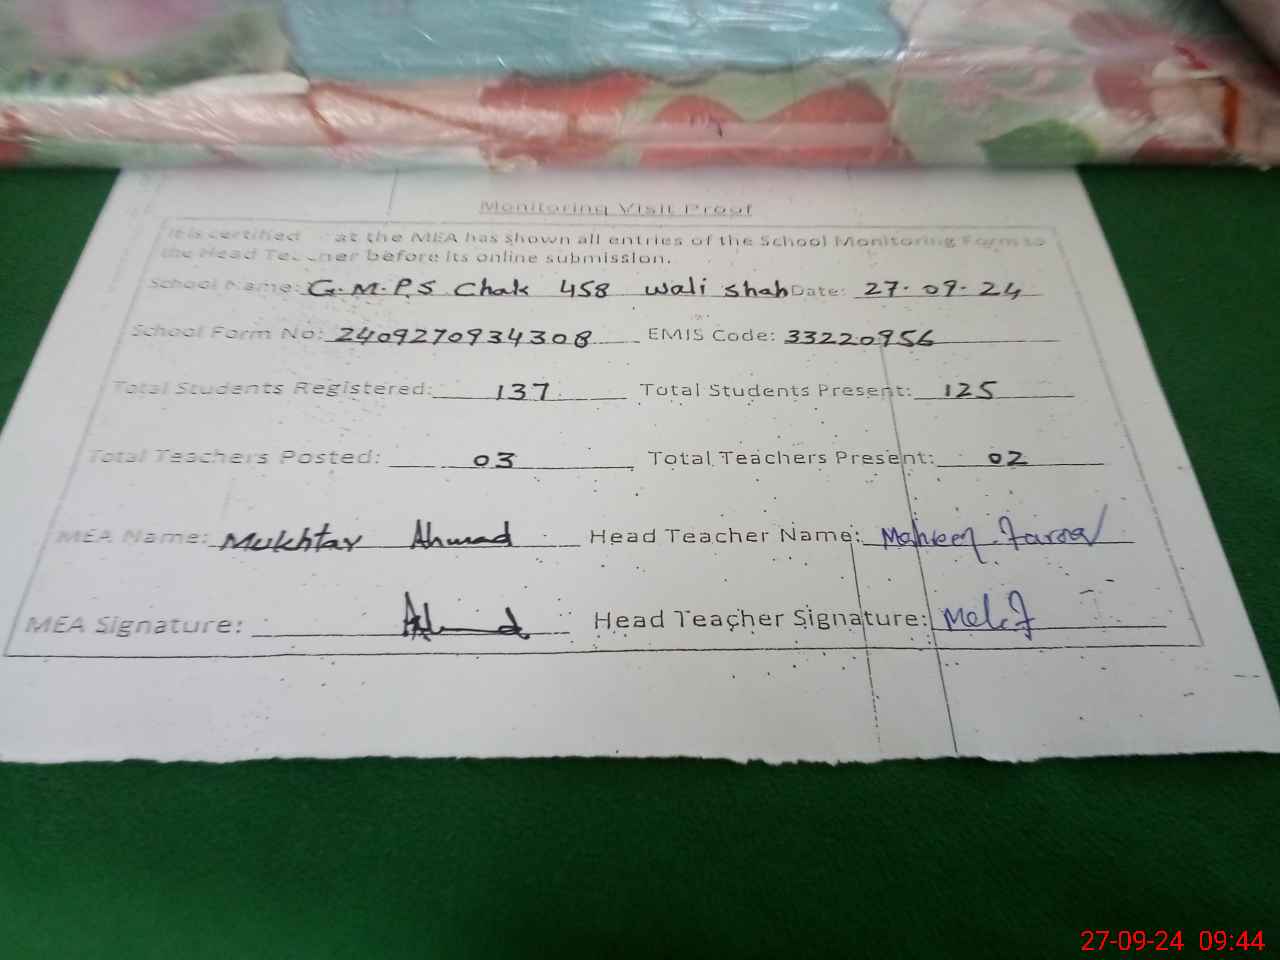 Monitoring Visit Proof
It is certified at the MEA has shown all entries of the School Monitoring Form to
the Head Teacher before its online submission.
School Name: G.M.P.S Chak 458 Wali Shah Date: 27.09.24
School Form No: 2409270934308 EMIS Code: 33220956
Total Students Registered: 137 Total Students Present: 125
Total Teachers Posted: 03 Total Teachers Present: 02
MEA Name: Mukhtar Ahmad Head Teacher Name:
MEA Signature: Head Teacher Signature:
27-09-24 09:44